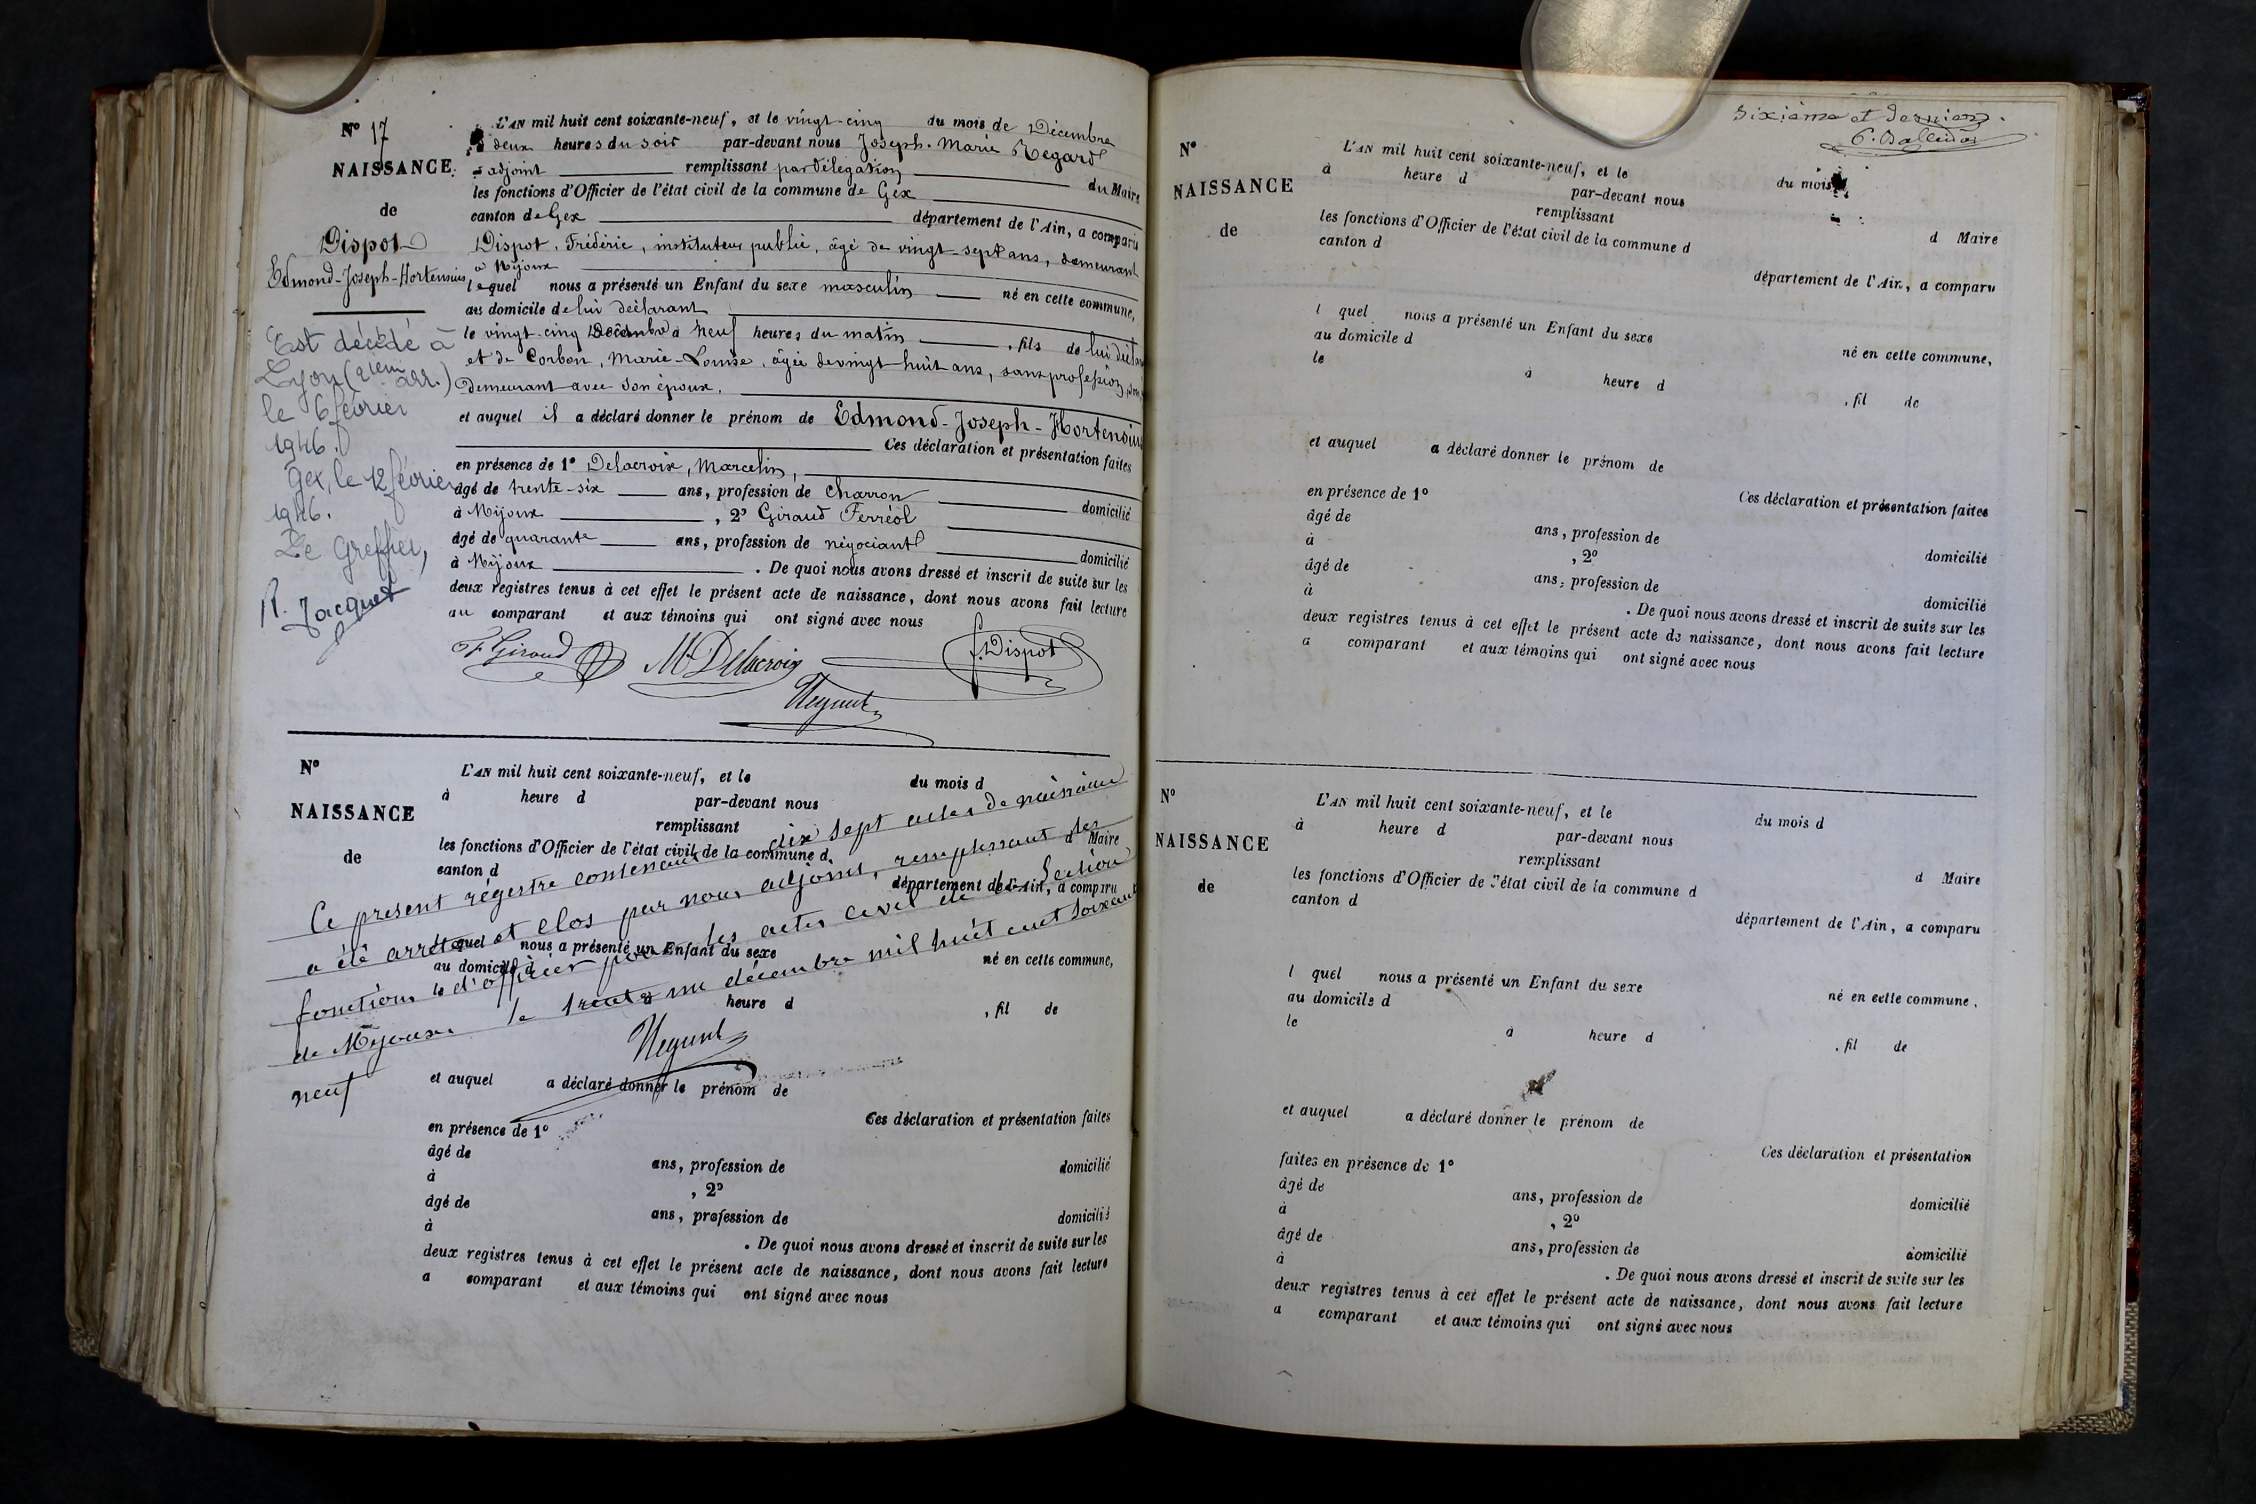 N° 17
NAISSANCE
de
Dispot
Edmond-Joseph-Hortensius
Est décédé à
Lyon (2ième arr.)
le 6 février
1946.
Gex, le 12 février
1946.
Le Greffier,
R. Jacquet
L'AN mil huit cent soixante-neuf, et le vingt-cinq du mois de Décembre
à deux heures du soir par-devant nous Joseph-Marie Regard
adjoint remplissant par délégation du Maire
les fonctions d'Officier de l'état civil de la commune de Gex
canton de Gex département de l'Ain, a comparu
Dispot, Frédéric, instituteur public, âgé de vingt-sept ans, demeurant
à Mijoux
lequel nous a présenté un Enfant du sexe masculin né en cette commune,
au domicile de lui déclarant
le vingt-cinq Décembre à neuf heures du matin, fils de lui déclarant
et de Corbon, Marie-Louise, âgée de vingt huit ans, sans profession,
demeurant avec son époux.
et auquel il a déclaré donner le prénom de Edmond-Joseph-Hortensius
Ces déclaration et présentation faites
en présence de 1° Delacroix, Marcelin,
âgé de trente-six ans, profession de charron domicilié
à Mijoux, 2° Giraud Ferréol
âgé de quarante ans, profession de négociant domicilié
à Mijoux. De quoi nous avons dressé et inscrit de suite sur les
deux registres tenus à cet effet le présent acte de naissance, dont nous avons fait lecture
au comparant et aux témoins qui ont signé avec nous
F. Giraud M. Delacroix f. Dispot
Regard
N°
NAISSANCE
de
L'AN mil huit cent soixante-neuf, et le du mois d
à heure d par-devant nous
remplissant d Maire
les fonctions d'Officier de l'état civil de la commune d
canton d département de l'Ain, a comparu
l quel nous a présenté un Enfant du sexe né en cette commune,
au domicile d
le à heure d , fil de
Ce présent régestre contenant dix sept actes de naissance
a été arrêté et clos par nous adjoint, remplissant les
fonctions d'officier pour les actes civil de la Section
de Mijoux le trente un décembre mil huit cent soixante
neuf
Regard
et auquel a déclaré donner le prénom de
Ces déclaration et présentation faites
en présence de 1°
âgé de ans, profession de domicilié
à , 2°
âgé de ans, profession de domicilié
à . De quoi nous avons dressé et inscrit de suite sur les
deux registres tenus à cet effet le présent acte de naissance, dont nous avons fait lecture
a comparant et aux témoins qui ont signé avec nous
Sixième et dernier.
N°
NAISSANCE
de
L'AN mil huit cent soixante-neuf, et le du mois
à heure d par-devant nous
remplissant d Maire
les fonctions d'Officier de l'état civil de la commune d
canton d département de l'Ain, a comparu
l quel nous a présenté un Enfant du sexe né en cette commune,
au domicile d
le à heure d , fil de
et auquel a déclaré donner le prénom de
Ces déclaration et présentation faites
en présence de 1°
âgé de ans, profession de domicilié
à , 2°
âgé de ans, profession de domicilié
à . De quoi nous avons dressé et inscrit de suite sur les
deux registres tenus à cet effet le présent acte de naissance, dont nous avons fait lecture
a comparant et aux témoins qui ont signé avec nous
N°
NAISSANCE
de
L'AN mil huit cent soixante-neuf, et le du mois d
à heure d par-devant nous
remplissant d Maire
les fonctions d'Officier de l'état civil de la commune d
canton d département de l'Ain, a comparu
l quel nous a présenté un Enfant du sexe né en cette commune.
au domicile d
le à heure d , fil de
et auquel a déclaré donner le prénom de
Ces déclaration et présentation
faites en présence de 1°
âgé de ans, profession de domicilié
à , 2°
âgé de ans, profession de domicilié
à . De quoi nous avons dressé et inscrit de suite sur les
deux registres tenus à cet effet le présent acte de naissance, dont nous avons fait lecture
a comparant et aux témoins qui ont signé avec nous